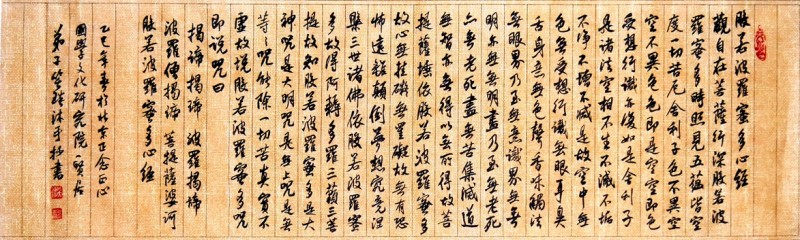 般若波羅蜜多心經
觀自在菩薩行深般若波
羅蜜多時照見五蘊皆空
度一切苦厄舍利子色不異空
空不異色色即是空空即色
受想行識亦復如是舍利子
是諸法空相不生不滅不垢
不淨不增不減是故空中無
色無受想行識無眼耳鼻
舌身意無色聲香味觸法
無眼界乃至無意識界無無
明亦無無明盡乃至無老死
亦無老死盡無苦集滅道
無智亦無得以無所得故菩
提薩埵依般若波羅蜜多
故心無罣礙無罣礙故無有恐
怖遠離顛倒夢想究竟涅
槃三世諸佛依般若波羅蜜
多故得阿耨多羅三藐三菩
提故知般若波羅蜜多是大
神咒是大明咒是無上咒是無
等等咒能除一切苦真實不
虛故說般若波羅蜜多咒
即說咒曰
揭諦揭諦 波羅揭諦
波羅僧揭諦 菩提薩婆訶
般若波羅蜜多心經
乙巳年春於北京正念正心
國學文化研究院一賢居
弟子 沐手敬書